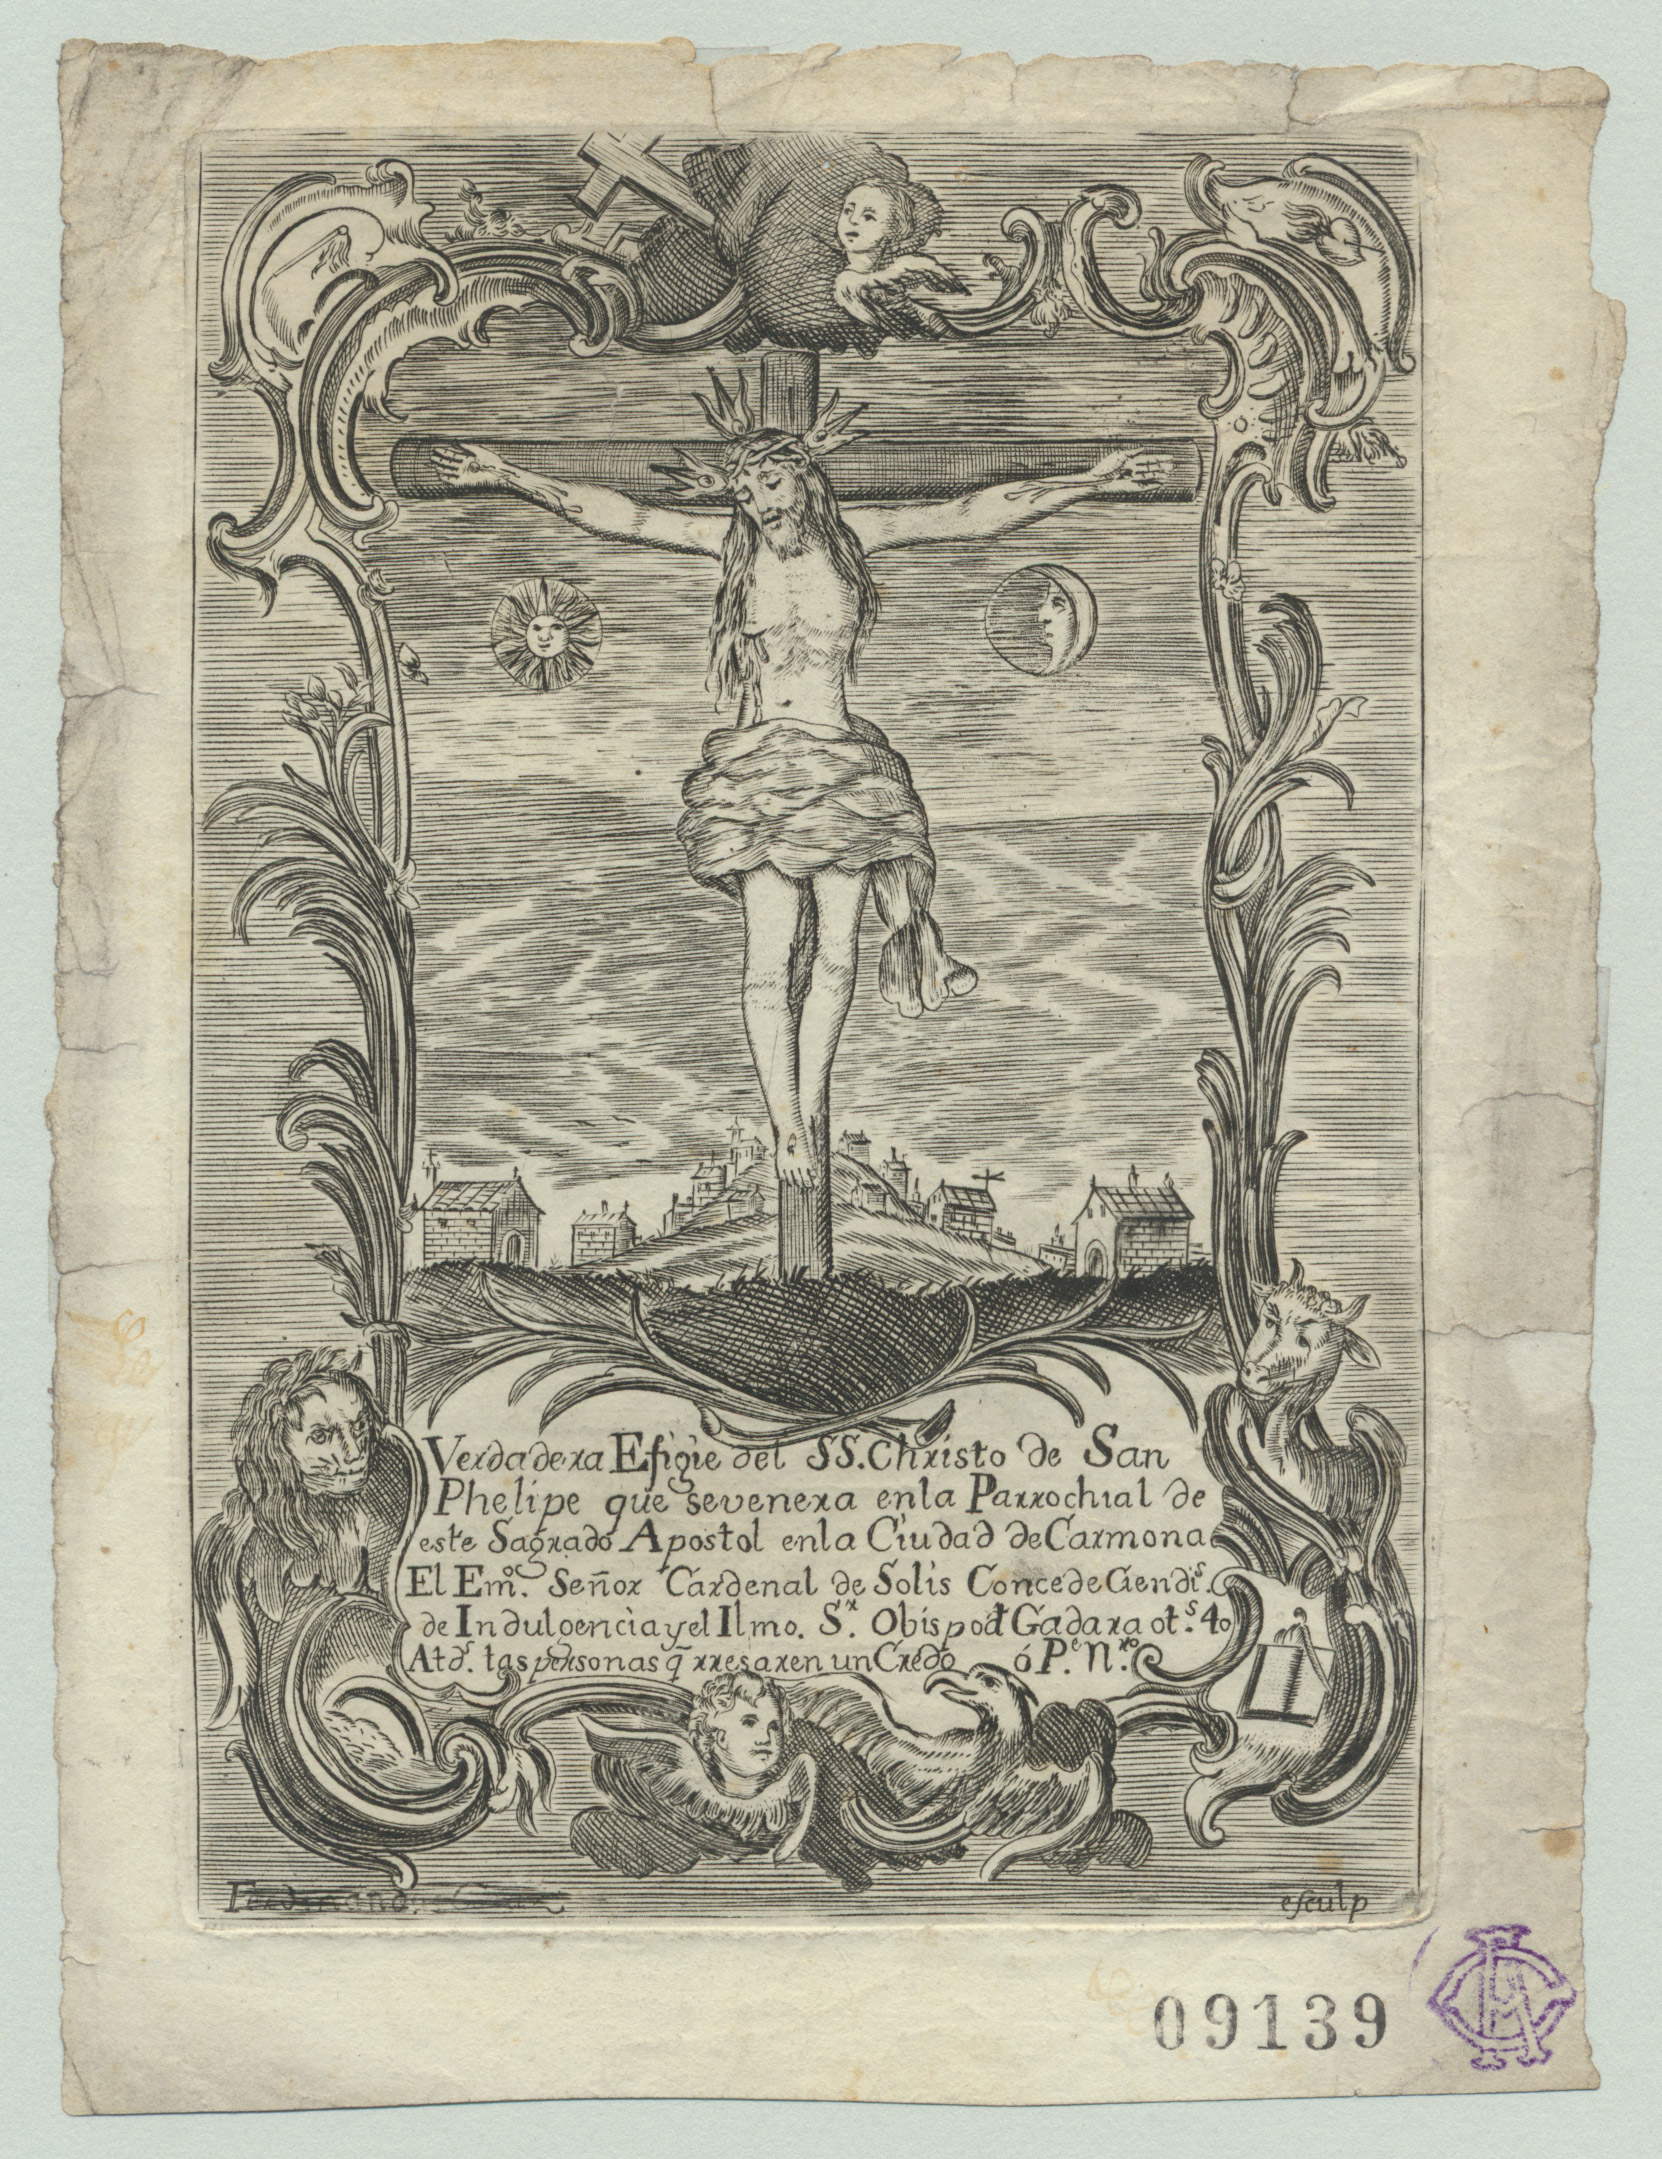 Verdadera Efigie del SS. Christo de San
Phelipe que sevenera enla Parrochial de
este Sagrado Apostol enla Ciudad deCarmona
El Emº. Señor Cardenal de Solis ConcedeCiendiˢ.
de Indulgencia y el Ilmo. Sʳ. Obispo đ Gadara otˢ. 40
Atdˢ. las personas q̃ rresaren un Credo ó Pᵉ. Nʳᵒ.
esculp
09139